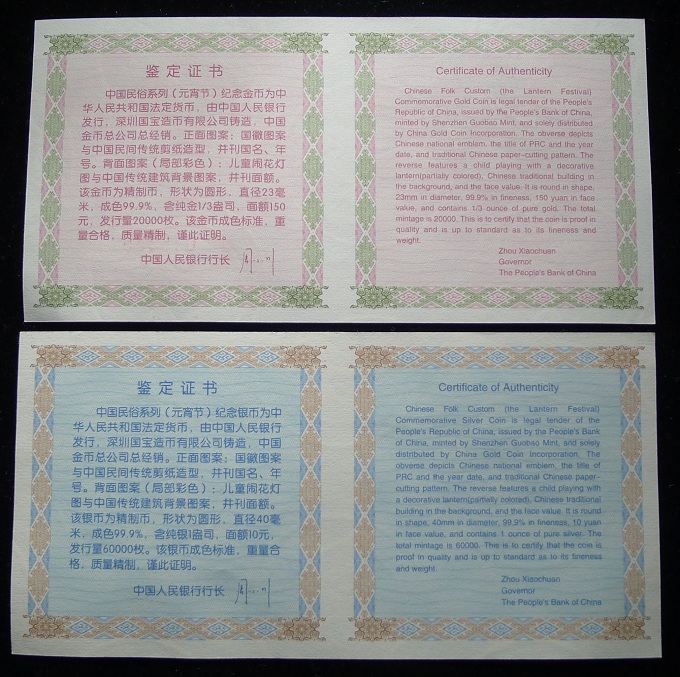 鉴定证书
中国民俗系列（元宵节）纪念金币为中
华人民共和国法定货币，由中国人民银行
发行，深圳国宝造币有限公司铸造，中国
金币总公司总经销。正面图案：国徽图案
与中国民间传统剪纸造型，并刊国名、年
号。背面图案（局部彩色）：儿童闹花灯
图与中国传统建筑背景图案，并刊面额。
该金币为精制币，形状为圆形，直径23毫
米，成色99.9%，含纯金1/3盎司，面额150
元，发行量20000枚。该金币成色标准，重
量合格，质量精制，谨此证明。
中国人民银行行长
Certificate of Authenticity
Chinese Folk Custom (the Lantern Festival)
Commemorative Gold Coin is legal tender of the People's
Republic of China, issued by the People's Bank of China,
minted by Shenzhen Guobao Mint, and solely distributed
by China Gold Coin Incorporation. The obverse depicts
Chinese national emblem, the title of PRC and the year
date, and traditional Chinese paper-cutting pattern. The
reverse features a child playing with a decorative
lantern(partially colored), Chinese traditional building in
the background, and the face value. It is round in shape,
23mm in diameter, 99.9% in fineness, 150 yuan in face
value, and contains 1/3 ounce of pure gold. The total
mintage is 20000. This is to certify that the coin is proof in
quality and is up to standard as to its fineness and
weight.
Zhou Xiaochuan
Governor
The People's Bank of China
鉴定证书
中国民俗系列（元宵节）纪念银币为中
华人民共和国法定货币，由中国人民银行
发行，深圳国宝造币有限公司铸造，中国
金币总公司总经销。正面图案：国徽图案
与中国民间传统剪纸造型，并刊国名、年
号。背面图案（局部彩色）：儿童闹花灯
图与中国传统建筑背景图案，并刊面额。
该银币为精制币，形状为圆形，直径40毫
米，成色99.9%，含纯银1盎司，面额10元，
发行量60000枚。该银币成色标准，重量合
格，质量精制，谨此证明。
中国人民银行行长
Certificate of Authenticity
Chinese Folk Custom (the Lantern Festival)
Commemorative Silver Coin is legal tender of the
People's Republic of China, issued by the People's Bank
of China, minted by Shenzhen Guobao Mint, and solely
distributed by China Gold Coin Incorporation. The
obverse depicts Chinese national emblem, the title of
PRC and the year date, and traditional Chinese paper-
cutting pattern. The reverse features a child playing with
a decorative lantern(partially colored), Chinese traditional
building in the background, and the face value. It is round
in shape, 40mm in diameter, 99.9% in fineness, 10 yuan
in face value, and contains 1 ounce of pure silver. The
total mintage is 60000. This is to certify that the coin is
proof in quality and is up to standard as to its fineness
and weight.
Zhou Xiaochuan
Governor
The People's Bank of China